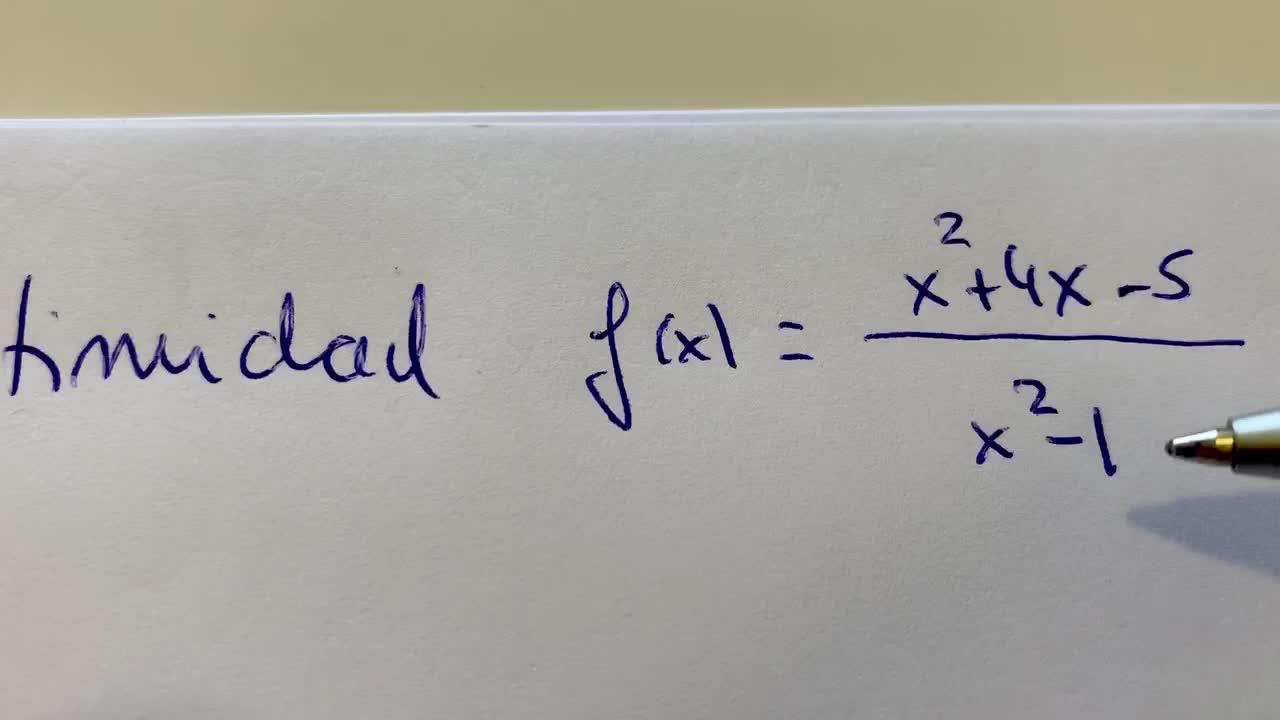 tinuidad f(x) = \frac{x^2+4x-5}{x^2-1}